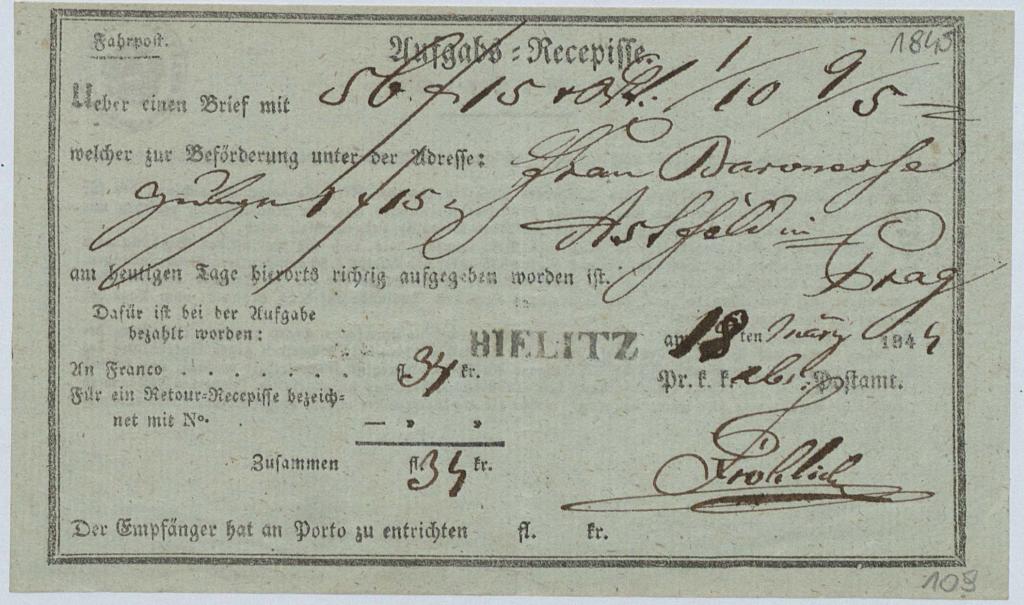 Fahrpost. 1845
Aufgabs=Recepisse.
Ueber einen Brief mit 56 f 15 x 1/10 9/5
welcher zur Beförderung unter der Adresse: Frau Baronesse
1 f 15 Astfeld in
am heutigen Tage hierorts richtig aufgegeben worden ist. Prag
Dafür ist bei der Aufgabe
bezahlt worden:
BIELITZ am 18 ten März 1844
An Franco . . . . . . . fl. 34 kr.
Pr. k. k. abs. Postamt.
Für ein Retour=Recepisse bezeich=
net mit No. — „ „
Zusammen fl. 34 kr.
Fröhlich
Der Empfänger hat an Porto zu entrichten fl. kr.
109